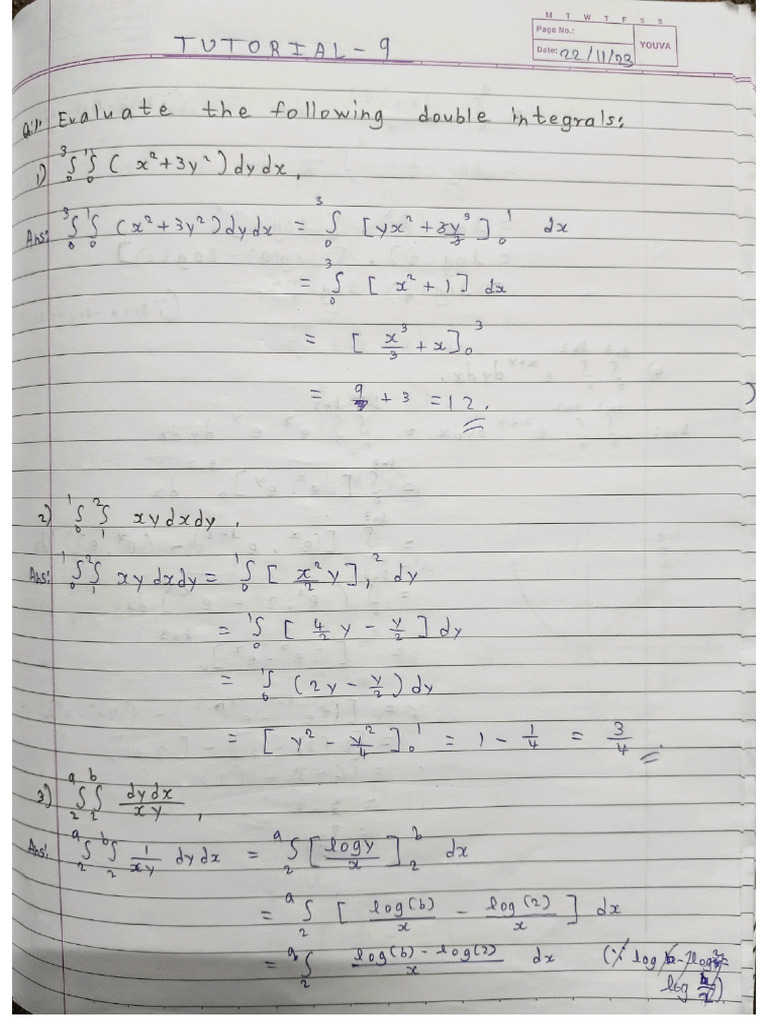 M T W T F S S
Page No.:
Date: 22/11/23
YOUVA
TUTORIAL - 9
Q.1. Evaluate the following double integrals:
1) ³∫₀ ¹∫₀ (x²+3y²) dy dx,
Ans: ³∫₀ ¹∫₀ (x²+3y²) dy dx = ³∫₀ [yx² + 3y³/3]₀¹ dx
= ³∫₀ [x² + 1] dx
= [x³/3 + x]₀³
= 9 + 3 = 12.
2) ¹∫₀ ²∫₁ xy dx dy,
Ans: ¹∫₀ ²∫₁ xy dx dy = ¹∫₀ [x²/2 y]₁² dy
= ¹∫₀ [4/2 y - y/2] dy
= ¹∫₀ (2y - y/2) dy
= [y² - y²/4]₀¹ = 1 - 1/4 = 3/4.
3) ᵃ∫₂ ᵇ∫₂ dy dx/xy,
Ans: ᵃ∫₂ ᵇ∫₂ 1/xy dy dx = ᵃ∫₂ [log y/x]₂ᵇ dx
= ᵃ∫₂ [log(b)/x - log(2)/x] dx
= ᵃ∫₂ log(b) - log(2)/x dx